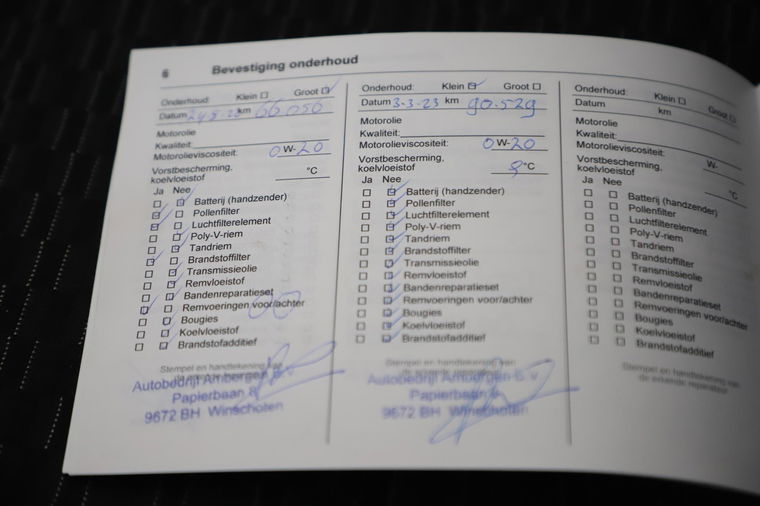 6 Bevestiging onderhoud
Onderhoud: Klein Groot
Datum km 66.056
Motorolie
Kwaliteit:
Motorolieviscositeit: 0 W-20
Vorstbescherming,
koelvloeistof °C
Ja Nee
Batterij (handzender)
Pollenfilter
Luchtfilterelement
Poly-V-riem
Tandriem
Brandstoffilter
Transmissieolie
Remvloeistof
Bandenreparatieset
Remvoeringen voor/achter
Bougies
Koelvloeistof
Brandstofadditief
Stempel en handtekening van
Autobedrijf Ambergen B.v
Papierbaan 8
9672 BH Winschoten
Onderhoud: Klein Groot
Datum 3-3-23 km 90.529
Motorolie
Kwaliteit:
Motorolieviscositeit: 0 W-20
Vorstbescherming,
koelvloeistof °C
Ja Nee
Batterij (handzender)
Pollenfilter
Luchtfilterelement
Poly-V-riem
Tandriem
Brandstoffilter
Transmissieolie
Remvloeistof
Bandenreparatieset
Remvoeringen voor/achter
Bougies
Koelvloeistof
Brandstofadditief
Stempel en handtekening van
de erkende reparateur
Autobedrijf Ambergen B.v
Papierbaan 8
9672 BH Winschoten
Onderhoud: Klein Groot
Datum km
Motorolie
Kwaliteit:
Motorolieviscositeit: W-
Vorstbescherming,
koelvloeistof °C
Ja Nee
Batterij (handzender)
Pollenfilter
Luchtfilterelement
Poly-V-riem
Tandriem
Brandstoffilter
Transmissieolie
Remvloeistof
Bandenreparatieset
Remvoeringen voor/achter
Bougies
Koelvloeistof
Brandstofadditief
Stempel en handtekening van
de erkende reparateur